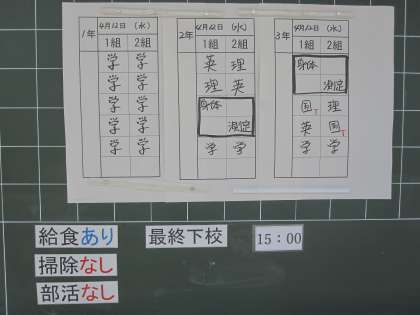 1年 4月12日 (水)
1組 2組
学 学
学 学
学 学
学 学
学 学
2年 4月12日 (水)
1組 2組
英 理
理 英
身体
測定
学 学
3年 4月12日 (水)
1組 2組
身体
測定
国T 理
英 国T
学 学
給食あり 最終下校 15:00
掃除なし
部活なし